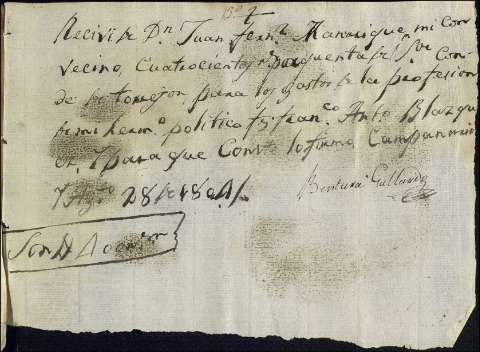 Recivi de Dn. Juan Fern.z Manrrique mi con
vecino, Cuatrocientos rs. por quenta del Sor. Con
de de torrejon para los gastos de la profesion
de mi herm.o politico Fr. Fran.co Ant.o Blazqu
ez, Y para que Conste lo firmo Campanario
Y Ag.to 28 de 1804
Bentura Gallardo
Son